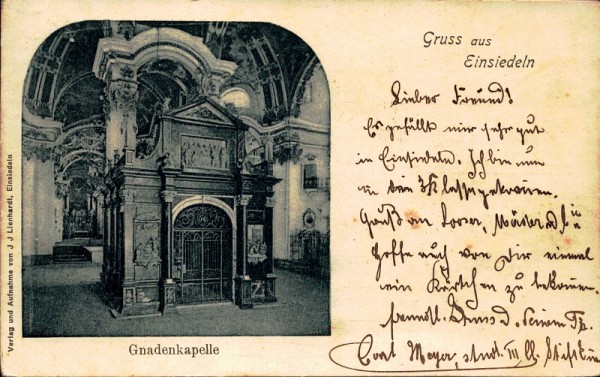 Gruss aus
Einsiedeln
Lieber Freund!
Es gefällt mir sehr gut
in Einsiedeln. Ich bin nun
in die 3te Klasse gekommen.
Gruß an
Hoffe auch von Dir einmal
ein Kärtchen zu bekommen.
Carl Meyer, stud. III Cl. Stift
Gnadenkapelle
Verlag und Aufnahme von J. J. Lienhardt, Einsiedeln